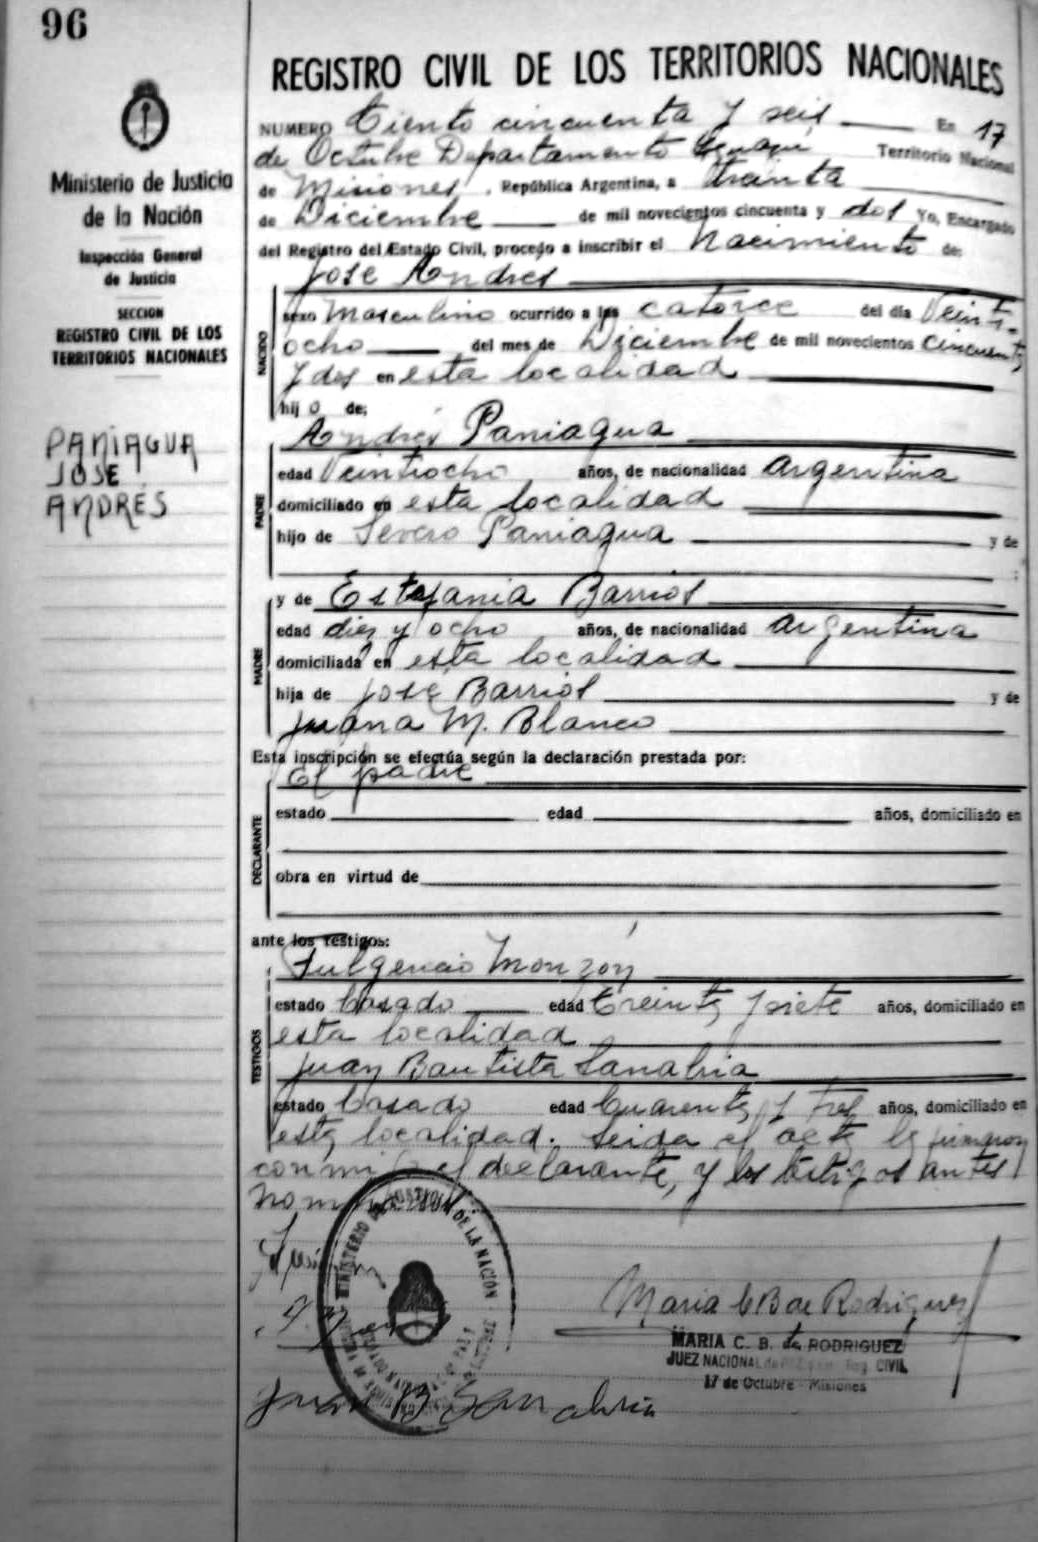 96
Ministerio de Justicia
de la Nación
Inspección General
de Justicia
SECCION
REGISTRO CIVIL DE LOS
TERRITORIOS NACIONALES
PANIAGUA
JOSE
ANDRÉS
REGISTRO CIVIL DE LOS TERRITORIOS NACIONALES
NUMERO Ciento cincuenta y seis En 17
de Octubre Departamento Territorio Nacional
de Misiones, República Argentina, a treinta
de Diciembre de mil novecientos cincuenta y dos Yo, Encargado
del Registro del Estado Civil, procedo a inscribir el nacimiento de:
José Andrés
NACIDO
sexo Masculino ocurrido a las catorce del día Veinti-
ocho del mes de Diciembre de mil novecientos cincuenta
y dos en esta localidad
hij o de;
Andrés Paniagua
PADRE
edad Veintiocho años, de nacionalidad argentina
domiciliado en esta localidad
hijo de Severo Paniagua y de
:
MADRE
y de Estefania Barrios
edad diez y ocho años, de nacionalidad argentina
domiciliada en esta localidad
hija de José Barrios y de
Juana M. Blanco
Esta inscripción se efectúa según la declaración prestada por:
El padre
DECLARANTE
estado edad años, domiciliado en
obra en virtud de
ante los testigos:
Fulgencio Monzón
TESTIGOS
estado Casado edad treinta y siete años, domiciliado en
esta localidad
Juan Bautista Sanabria
estado Casado edad Cuarenta y tres años, domiciliado en
esta localidad. Leida el acta la firmaron
conmigo el declarante, y los testigos antes
nominados
MINISTERIO DE JUSTICIA DE LA NACIÓN
Maria C B de Rodriguez
MARIA C. B. de RODRIGUEZ
JUEZ NACIONAL de Reg. CIVIL
17 de Octubre - Misiones
Juan B Sanabria